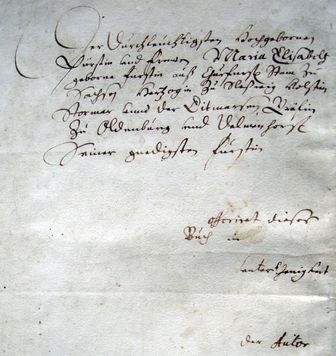 Der Durchleuchtigsten Hochgebornen
Fürstin und Frawen Maria Elisabeth
geborne Fürstin auß Chürfürst Stam zu
Sachsen Hertzogin zu Schleswig Holstein
Stormar unnd der Ditmarsen, Gräfin
zu Oldenburg und Delmenhorst
Seiner gnedigsten Fürstin
offeriret dieses
Buch in
unterthenigkeit
der Autor